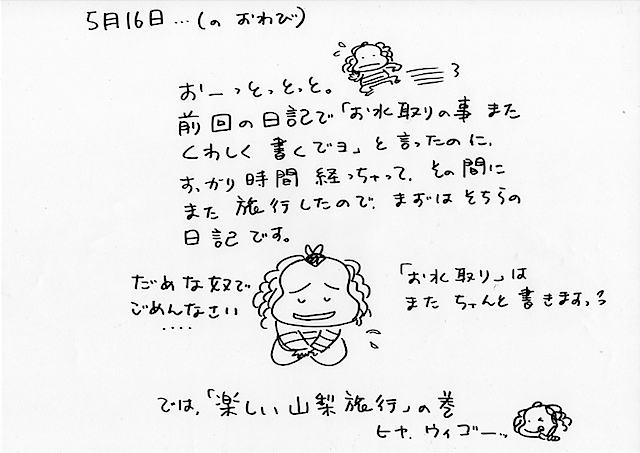 5月16日…(の おわび)
おーっとっとっと。
前回の日記で「お水取りの事 また
くわしく 書くでヨ」と言ったのに、
すっかり時間 経っちゃって、その間に
また 旅行したので、まずは そちらの
日記です。
だめな奴で
ごめんなさい
‥‥
「お水取り」は
また ちゃんと書きますっ
では、「楽しい山梨旅行」の巻
ヒヤ、ウィゴーッ